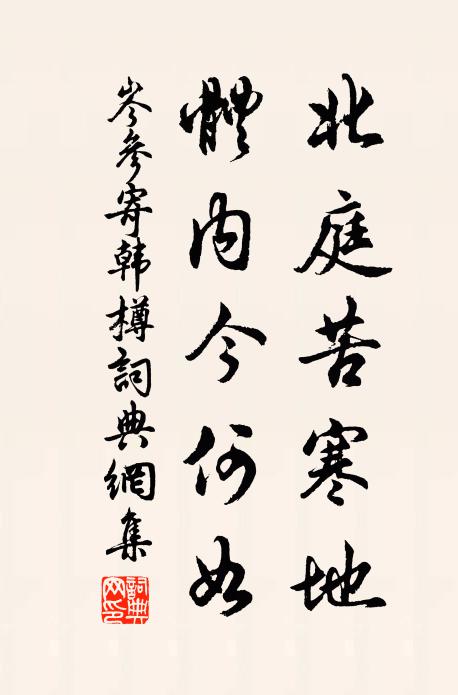 北庭苦寒地
體內今何如
岑參寄韩樽詞典網集
詞典
网印